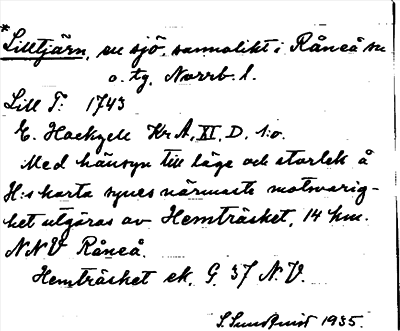 *Lilltjärn, en sjö, sannolikt i Råneå sn
o. tg, Norrb. l.
Lill T: 1743
E. Hackzell Kr A, XI, D, 1:o.
Med hänsyn till läge och storlek å
H:s karta synes närmaste motsvarig-
het utgöras av Hemträsket, 14 km.
NNV Råneå.
Hemträsket ek. G. 37 N.V.
S. Sundqvist 1935.